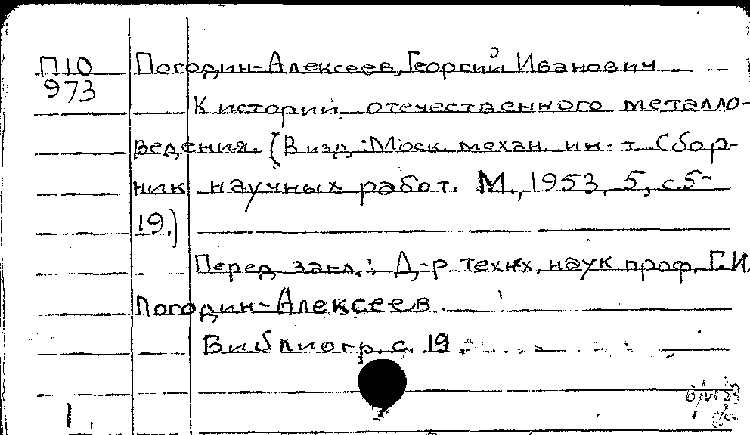 П10 Погодин-Алексеев, Георгий Иванович
973
К истории отечественного металло-
ведения. (В изд.: Моск. механ. ин-т. Сбор-
ник научных работ. М., 1953, 5, с. 5-
19.)
Перед загл.: Д-р техн. наук проф. Г.И.
Погодин-Алексеев.
Библиогр. с. 19.
1.